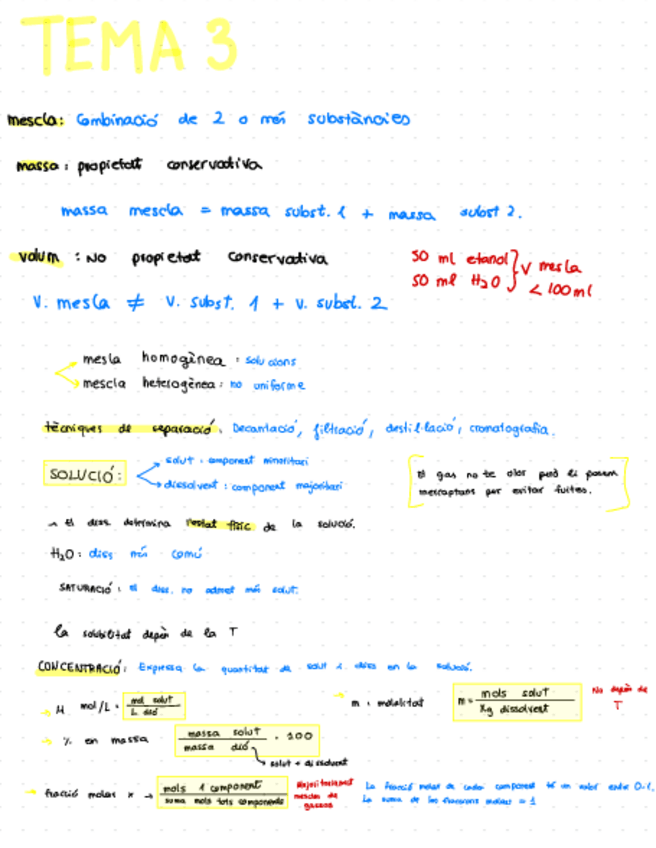 TEMA 3
mescla: Combinació de 2 o més substàncies
massa: propietat conservativa
massa mescla = massa subst. 1 + massa subst 2.
volum : NO propietat conservativa
50 ml etanol
50 ml H2O
V mesla
< 100 ml
V. mesla ≠ V. subst. 1 + V. subst. 2
mesla homogènea : solucions
mescla heterogènea : no uniforme
tècniques de separació. Decantació, filtració, destil·lació, cromatografia.
SOLUCIÓ:
solut : component minoritari
dissolvent : component majoritari
El gas no te olor però li posem
mercaptans per evitar fuites.
El diss. determina l'estat físic de la solució.
H2O : diss més comú
SATURACIÓ : el diss. no admet més solut.
la solubilitat depèn de la T
CONCENTRACIÓ: Expressa la quantitat de solut i diss en la solució.
M mol/L = mol solut / L disó
m = molalitat
m = mols solut / Kg dissolvent
No depèn de T
% en massa
massa solut / massa dió · 100
solut + dissolvent
fracció molar x → mols 1 component / suma mols tots components
Majoritàriament
mescles de
gasosos
La fracció molar de cada component té un valor entre 0-1.
La suma de les fraccions molars = 1